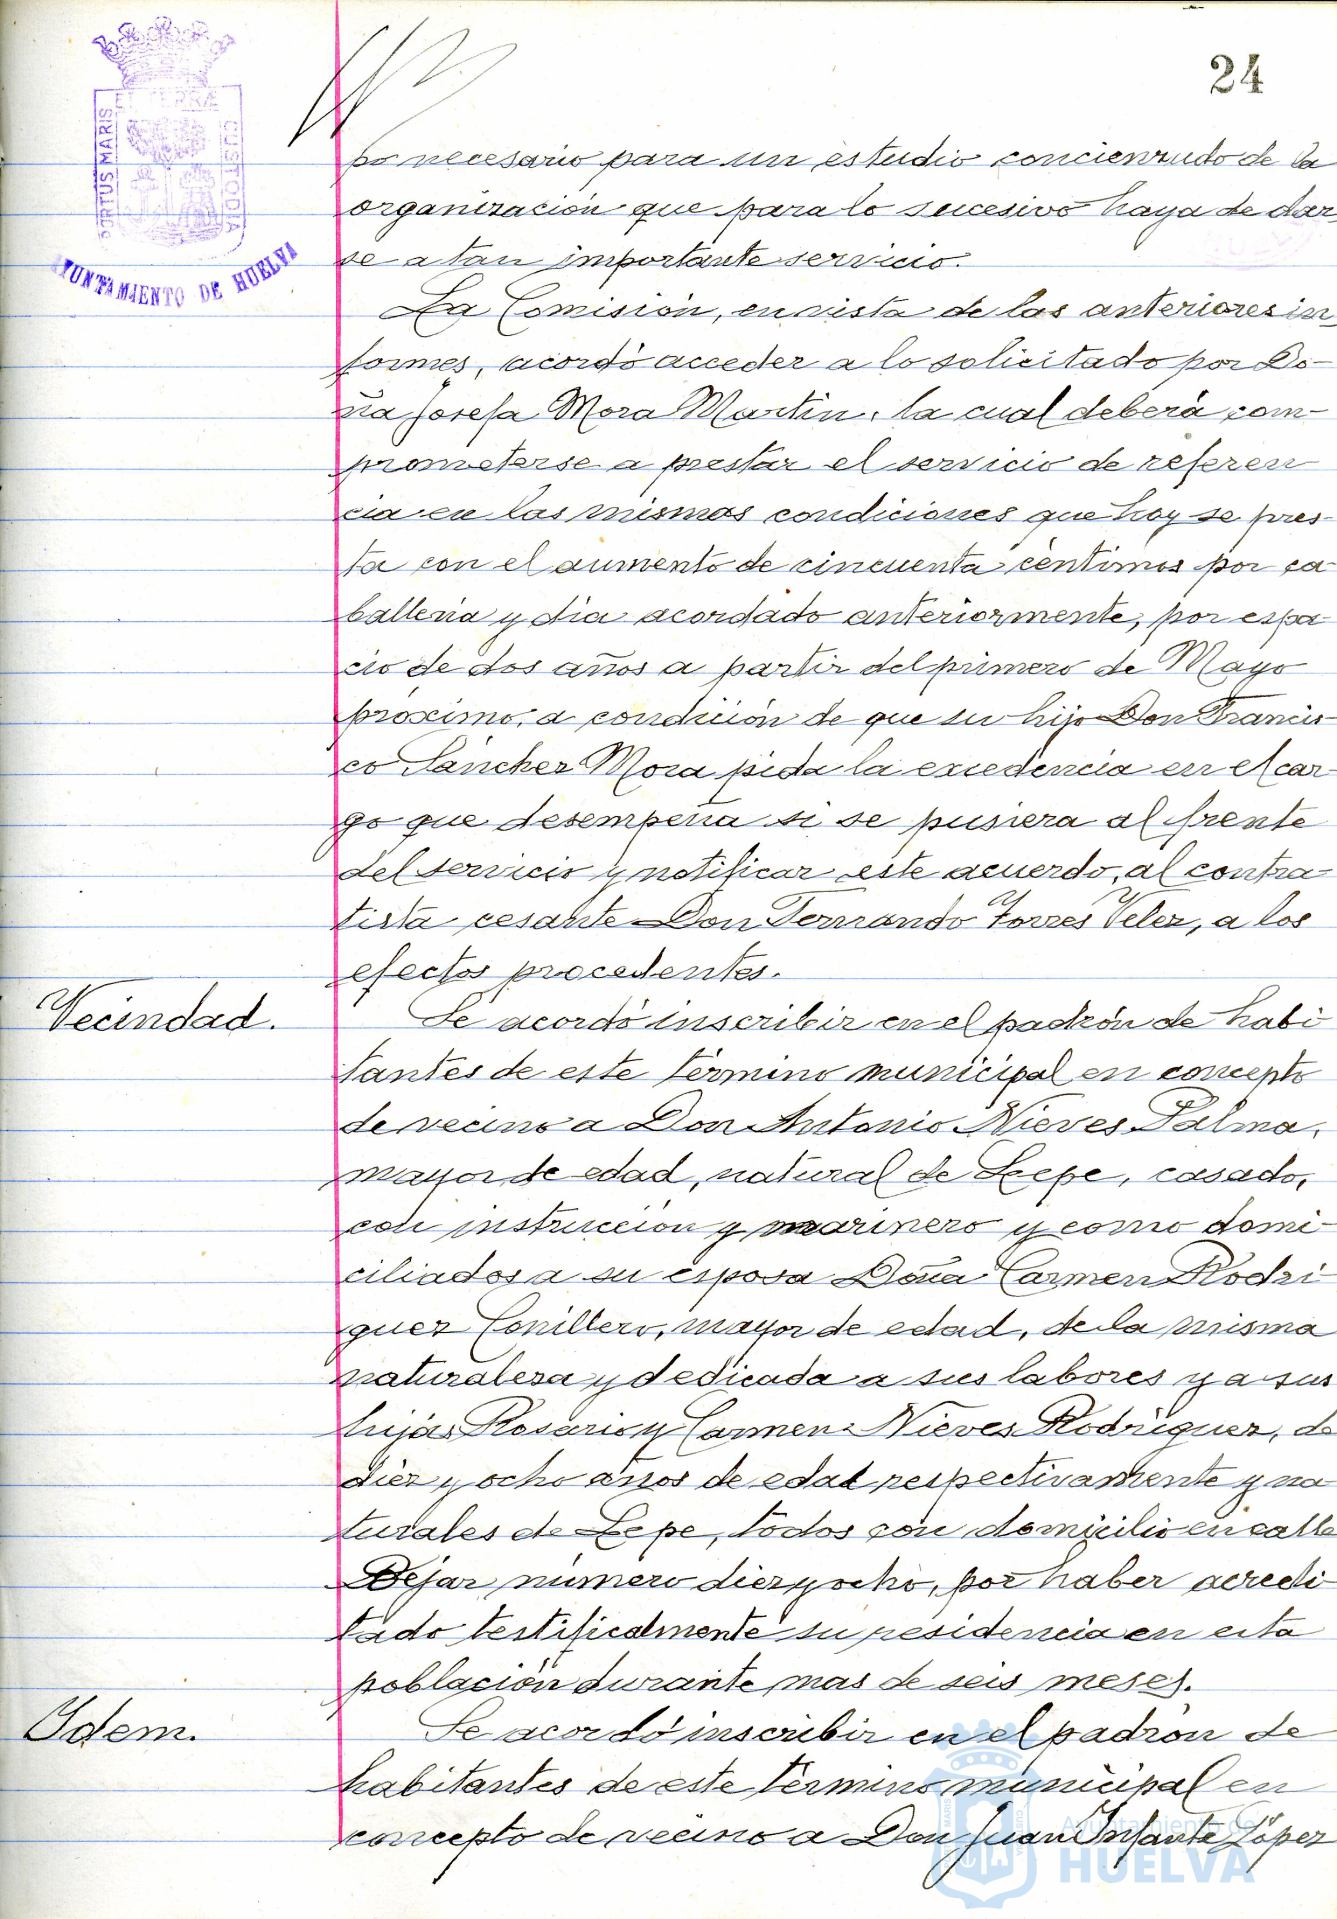 24
PORTUS MARIS ET TERRÆ CUSTODIA
AYUNTAMIENTO DE HUELVA
po necesario para un estudio concienzudo de la
organización que para lo sucesivo haya de dar-
se a tan importante servicio.
La Comisión, en vista de las anteriores in-
formes, acordó acceder a lo solicitado por Do-
ña Josefa Mora Martin, la cual deberá com-
prometerse a prestar el servicio de referen
cia en las mismas condiciones que hoy se pres-
ta con el aumento de cincuenta céntimos por ca-
ballería y dia acordado anteriormente, por espa-
cio de dos años a partir del primero de Mayo
próximo, a condición de que su hijo Don Francis-
co Sánchez Mora pida la excedencia en el car-
go que desempeña si se pusiera al frente
del servicio y notificar este acuerdo, al contra-
tista cesante Don Fernando Torres Velez, a los
efectos procedentes.
Vecindad.
Se acordó inscribir en el padrón de habi-
tantes de este término municipal en concepto
de vecino a Don Antonio Nieves Palma,
mayor de edad, natural de Lepe, casado,
con instrucción y marinero y como domi-
ciliados a su esposa Doña Carmen Rodrí-
guez Conillero, mayor de edad, de la misma
naturaleza y dedicada a sus labores y a sus
hijas Rosario y Carmen Nieves Rodríguez, de
diez y ocho años de edad respectivamente y na-
turales de Lepe, todos con domicilio en calle
Bejar número diez y ocho, por haber acredi-
tado testificalmente su residencia en esta
población durante mas de seis meses.
Ydem.
Se acordó inscribir en el padrón de
habitantes de este término municipal en
concepto de vecino a Don Juan Infante López
Ayuntamiento de
HUELVA